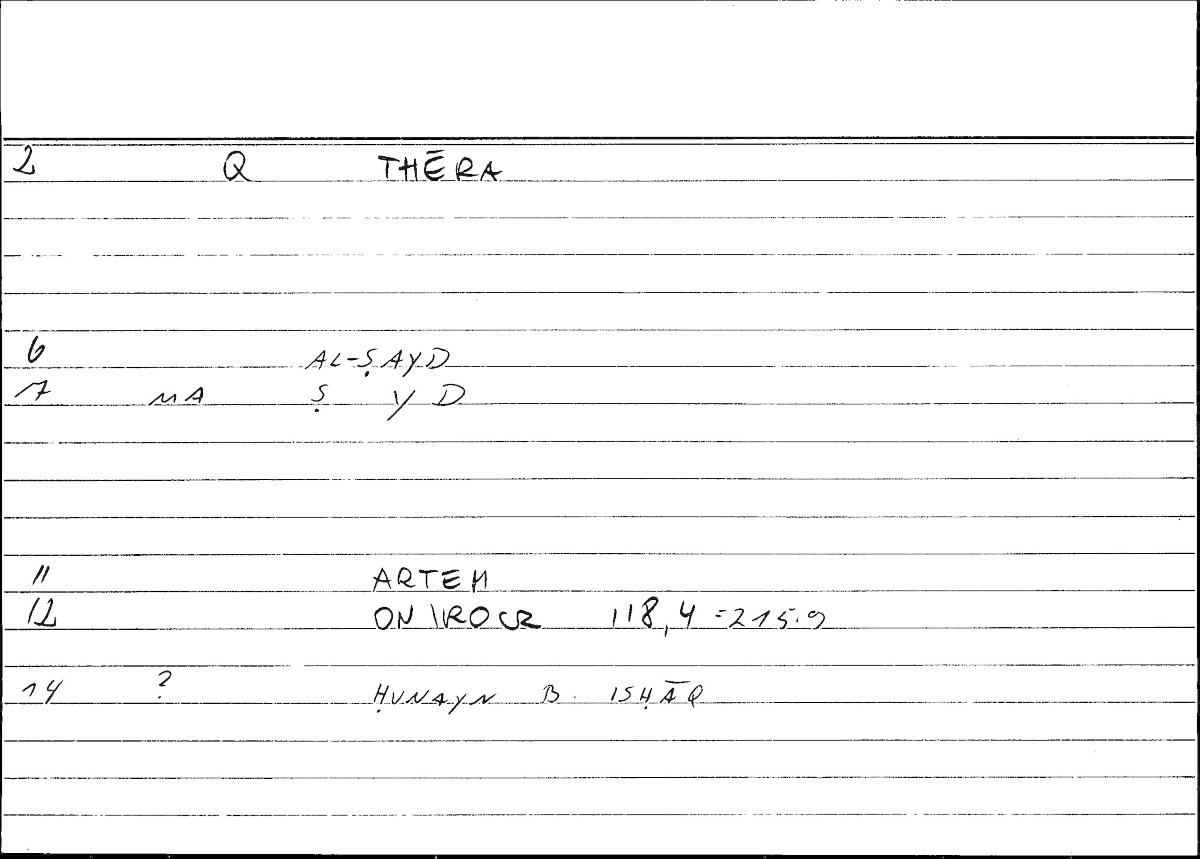 2 Q THĒRA
6 AL-ṢAYD
7 MA Ṣ Y D
11 ARTEM
12 ONIROCR 118,4 =215.9
14 ? ḤUNAYN B. ISḤĀQ